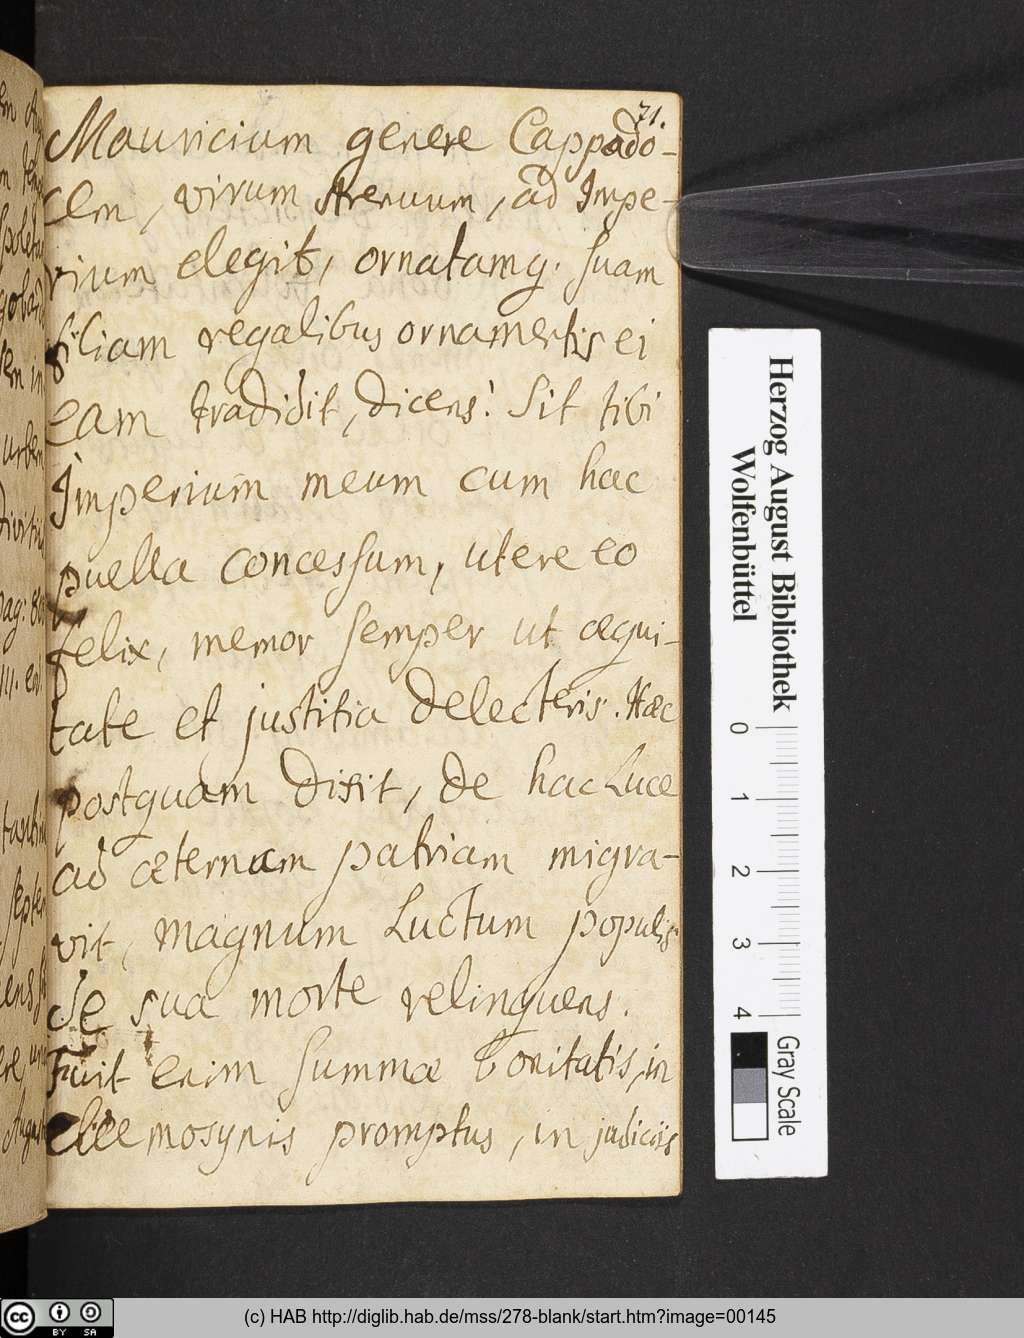 71.
Mauricium genere Cappado-
cem, virum strenuum, ad Impe-
rium elegit, ornatamq. suam
filiam regalibus ornamentis ei
eam tradidit, dicens: Sit tibi
Imperium meum cum hac
puella concessum, utere eo
felix, memor semper ut æqui-
tate et justitia delecteris. Hæc
postquam dixit, de hac Luce
ad æternam patriam migra-
vit, magnum Luctum populis
de sua morte relinquens.
Fuit enim summæ bonitatis, in
elee mosynis promptus, in judiciis
urbem
pag:
III.
Herzog August Bibliothek
Wolfenbüttel
0 1 2 3 4
Gray Scale
cc BY SA
(c) HAB http://diglib.hab.de/mss/278-blank/start.htm?image=00145